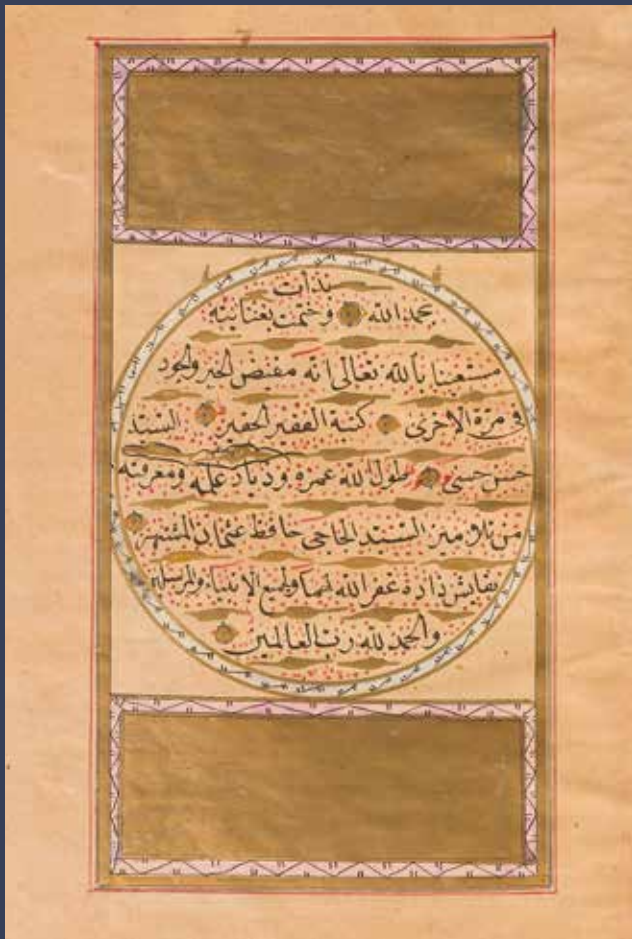 بدأت
بحمد الله وختمت بعنايته
مستعينا بالله تعالى انه مفيض الخير والجود
فى مرة الاخرى كتبه الفقير الحقير السيد
حسن حسنى طول الله عمره وزياد علمه ومعرفته
من تلاوميز السيد الحاجى حافظ عثمان المشتهر
بقايش زاده غفر الله لهما ولجميع الانبياء والمرسلين
والحمد لله رب العالمين